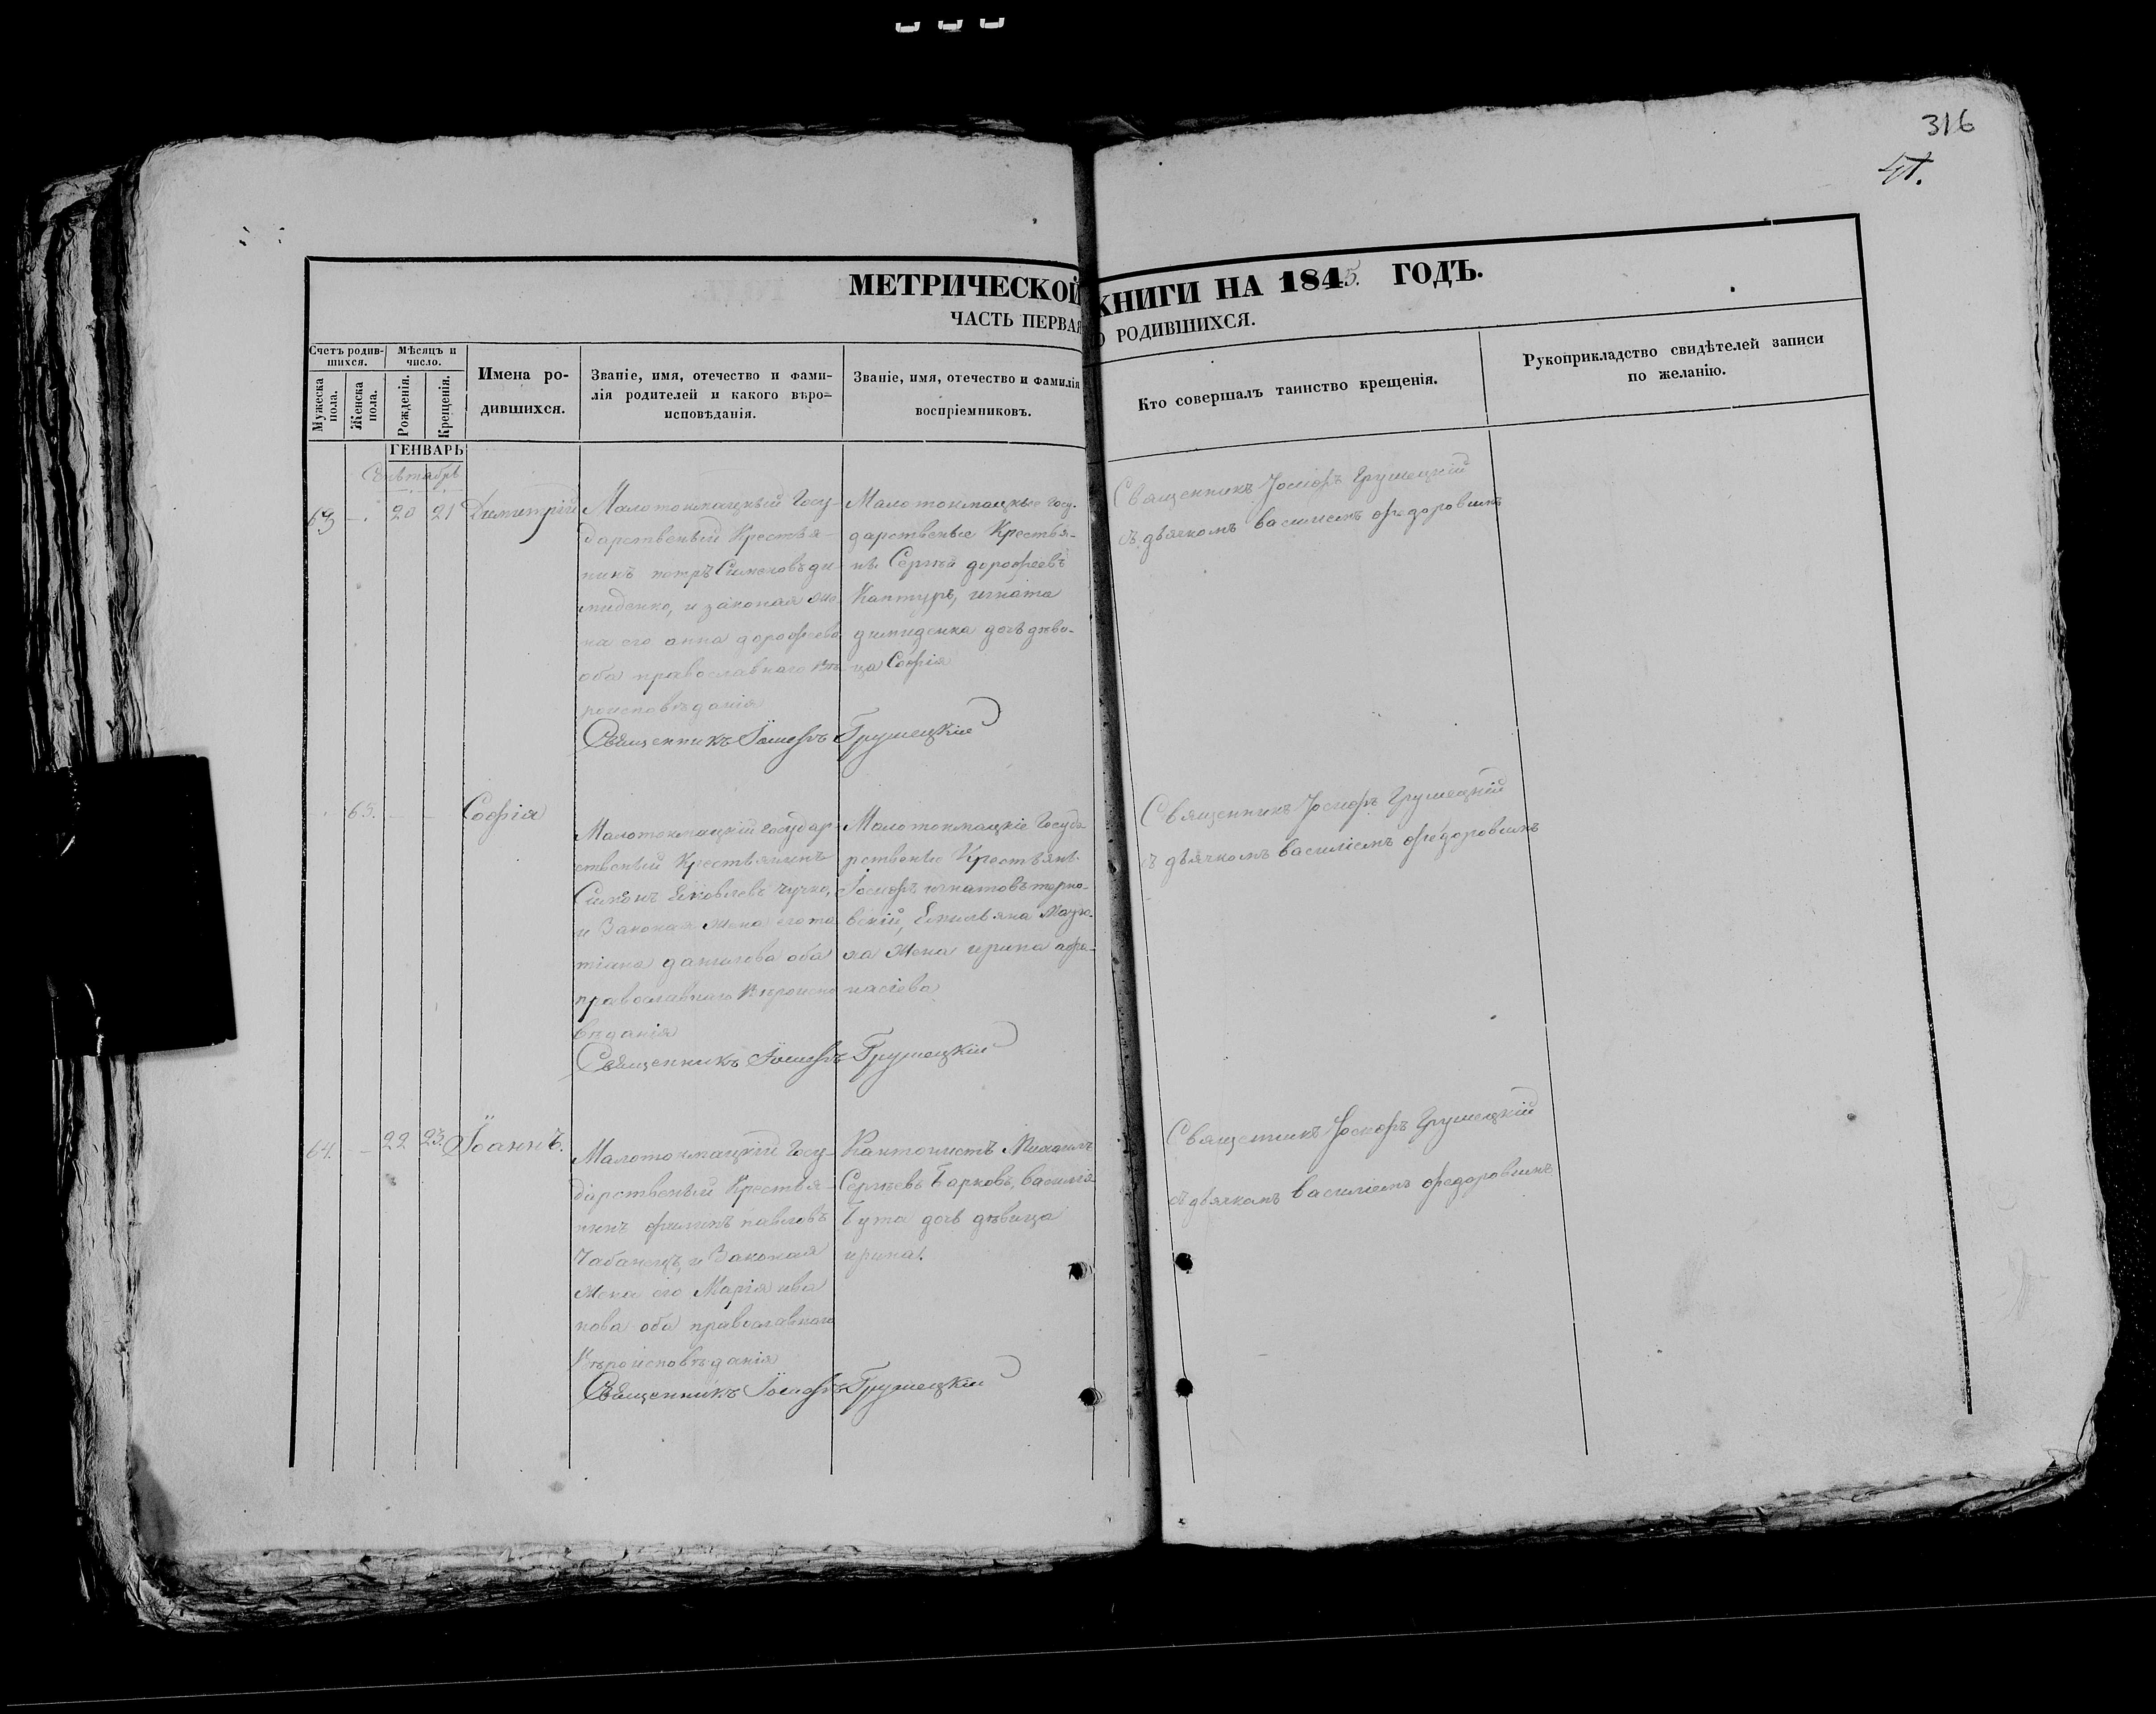 316
41.
МЕТРИЧЕСКОЙ КНИГИ НА 1845. ГОДЪ.
ЧАСТЬ ПЕРВАЯ О РОДИВШИХСЯ.
Счетъ родив-
шихся.
Мужеска
пола.
Женска
пола.
Мѣсяцъ и
число.
Рожденія.
Крещенія.
Имена ро-
дившихся.
Званіе, имя, отечество и фами-
лія родителей и какого вѣро-
исповѣданія.
Званіе, имя, отечество и фамилія
воспріемниковъ.
Кто совершалъ таинство крещенія.
Рукоприкладство свидѣтелей записи
по желанію.
ГЕНВАРЬ
63 20 21 Димитрій
Малотокмацкый Госу-
дарственый Крестья-
нинъ петръ Симеоновъ ди-
миденко, и законая же-
на его анна дорофеева
оба православнаго вѣ-
роисповѣданія
Малотокмацкые госу-
дарственые Крестья-
не Сергѣй дорофеевъ
Каптуръ, игната
димиденка дочь дѣви-
ца Софія
Священникъ Іосифъ Грушецкій
Священникъ Іосифъ Грушецкій
съ дьячкомъ василіемъ федоровымъ
63. Софія
Малотокмацкій государ-
ственый Крестьянинъ
Симонъ Яковлевъ чучко,
и Законая жена его та
тіана данилова оба
православнаго вѣроиспо
вѣданія
Малотокмацкіе Госуда-
рственые Крестьяне
Іосифъ игнатовъ терно-
вскій, Емильяна Мазу-
ла жена ирина афа-
насіева
Священникъ Іосифъ Грушецкій
Священникъ Іосифъ Грушецкій
съ дьячкомъ василіемъ федоровымъ
64. 22 23. Іоаннъ.
Малотокмацкій Госу-
дарственый Крестья-
нинъ филипъ павловъ
Чабанецъ, и Законая
жена его Марія ива
нова оба православнаго
Вѣроисповѣданія
Кантонистъ Михаилъ
Сергѣевъ Барковъ, василія
Бута дочь дѣвица
ирина.
Священникъ Іосифъ Грушецкій
Священникъ Іосифъ Грушецкій
съ дьячкомъ василіемъ федоровымъ